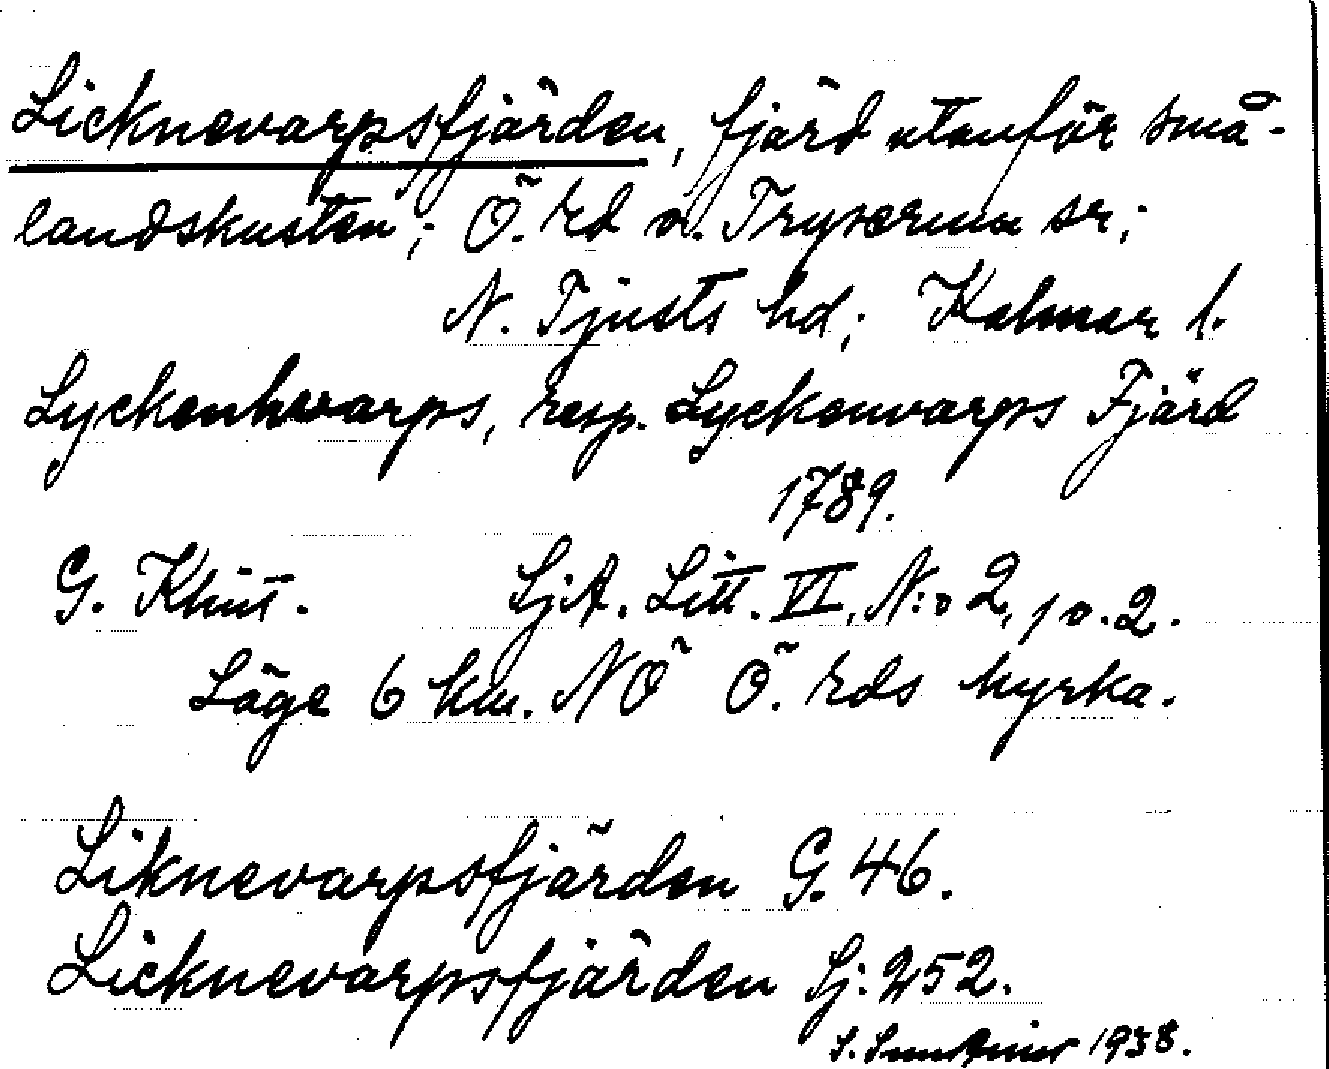 Licknevarpsfjärden, fjärd utanför små-
landskusten; Ö. Ed o. Tryserum sr;
N. Tjusts hd; Kalmar l.
Lyckenhvarps, resp. Lyckenvarps Fjärd
1789.
G. Klint. SjA. Litt. VI, N:o 2, 10.2.
Läge 6 km. NÖ Ö. Eds kyrka.
Liknevarpsfjärden G. 46.
Licknevarpsfjärden Sj: 252.
S. 1938.